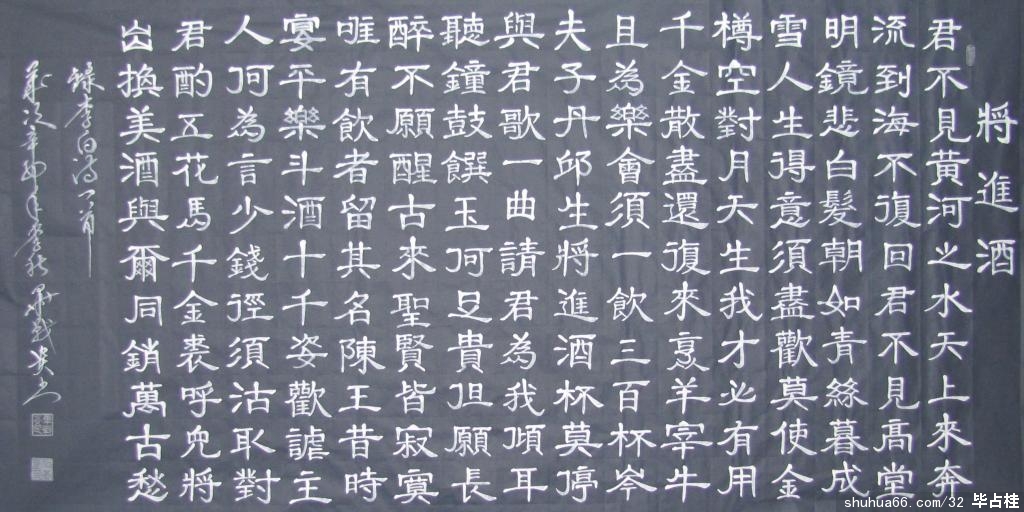 將進酒
君不見黃河之水天上來奔
流到海不復回君不見高堂
明鏡悲白髮朝如青絲暮成
雪人生得意須盡歡莫使金
樽空對月天生我才必有用
千金散盡還復來烹羊宰牛
且為樂會須一飲三百杯岑
夫子丹邱生將進酒杯莫停
與君歌一曲請君為我傾耳
聽鐘鼓饌玉何足貴但願長
醉不願醒古來聖賢皆寂寞
唯有飲者留其名陳王昔時
宴平樂斗酒十千姿歡謔主
人何為言少錢徑須沽取對
君酌五花馬千金裘呼兒將
出換美酒與爾同銷萬古愁
錄李白詩一首
歲次辛卯年季秋
shuhua66.com/32 毕占桂